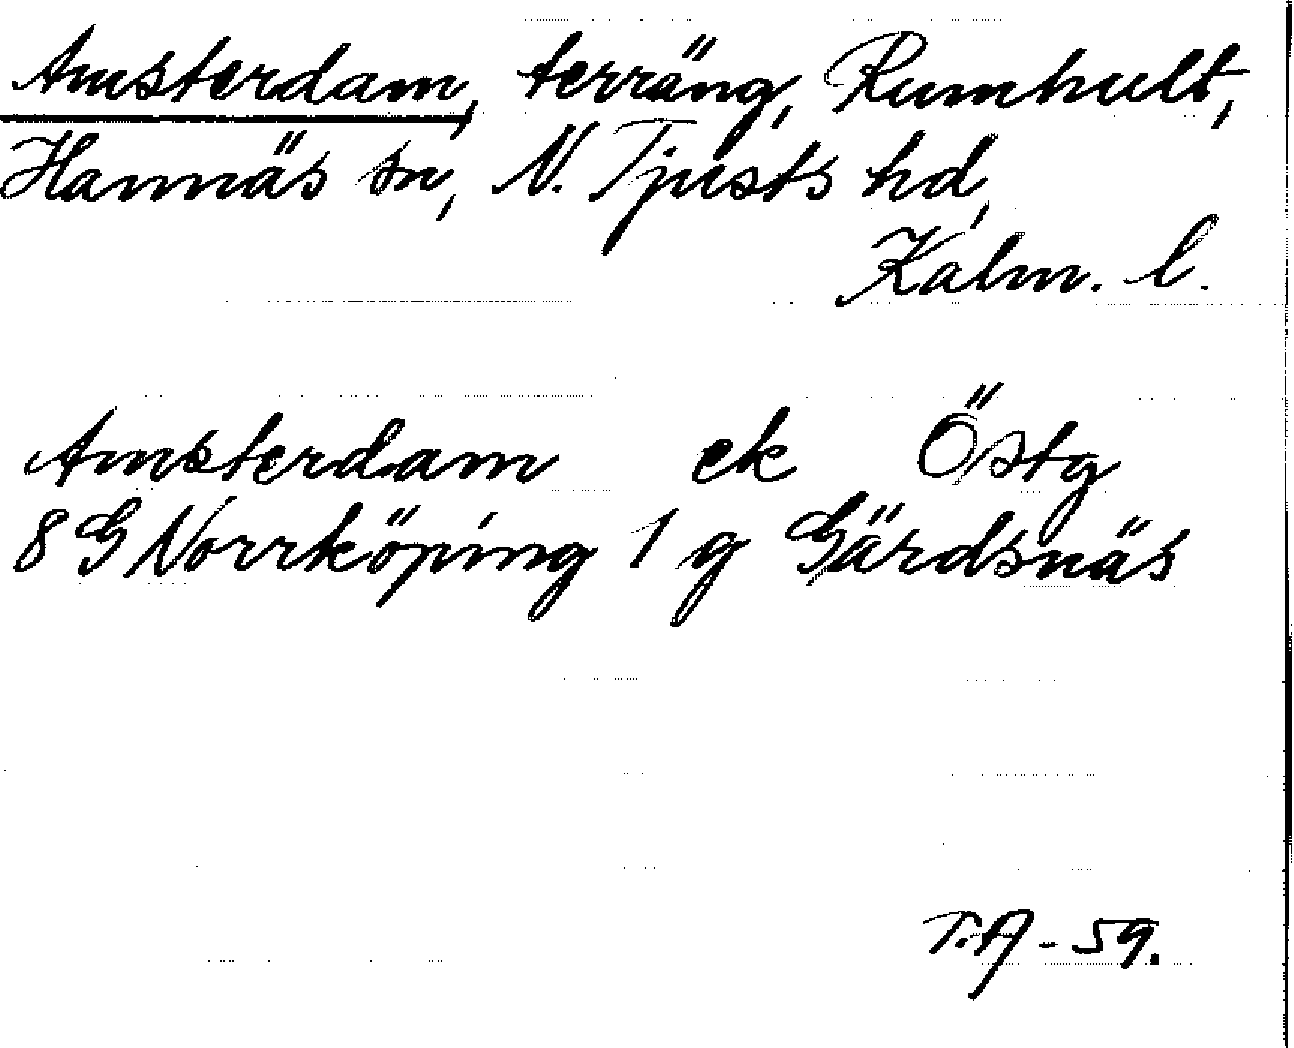 Amsterdam, terräng, Rumhult,
Hannäs sn, N. Tjusts hd,
Kalm. l.
Amsterdam ek Östg
8 G Norrköping 1 g Gärdsnäs
T.A - 59.